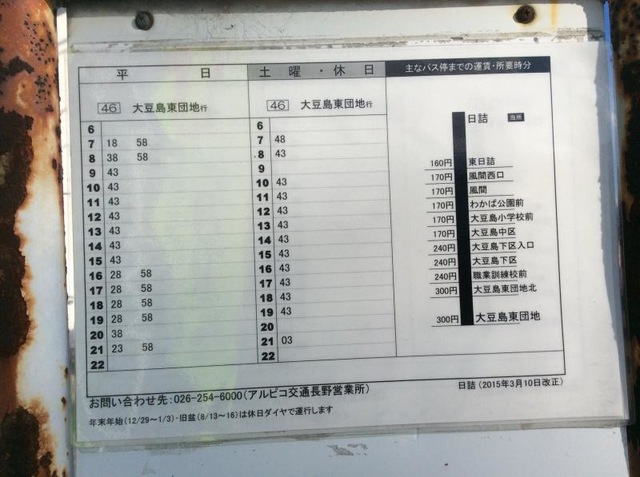 平 日
46 大豆島東団地行
6
7 18 58
8 38 58
9 43
10 43
11 43
12 43
13 43
14 43
15 43
16 28 58
17 28 58
18 28 58
19 28 58
20 38
21 23 58
22
土 曜 ・ 休 日
46 大豆島東団地行
6
7 48
8 43
9
10 43
11 43
12 43
13 43
14 43
15 43
16 43
17 43
18 43
19 43
20
21 03
22
主なバス停までの運賃・所要時分
日詰 当所
160円 東日詰
170円 風間西口
170円 風間
170円 わかば公園前
170円 大豆島小学校前
170円 大豆島中区
240円 大豆島下区入口
240円 大豆島下区
240円 職業訓練校前
300円 大豆島東団地北
300円 大豆島東団地
お問い合わせ先：026-254-6000（アルピコ交通長野営業所）
日詰（2015年3月10日改正）
年末年始（12/29～1/3）・旧盆（8/13～16）は休日ダイヤで運行します